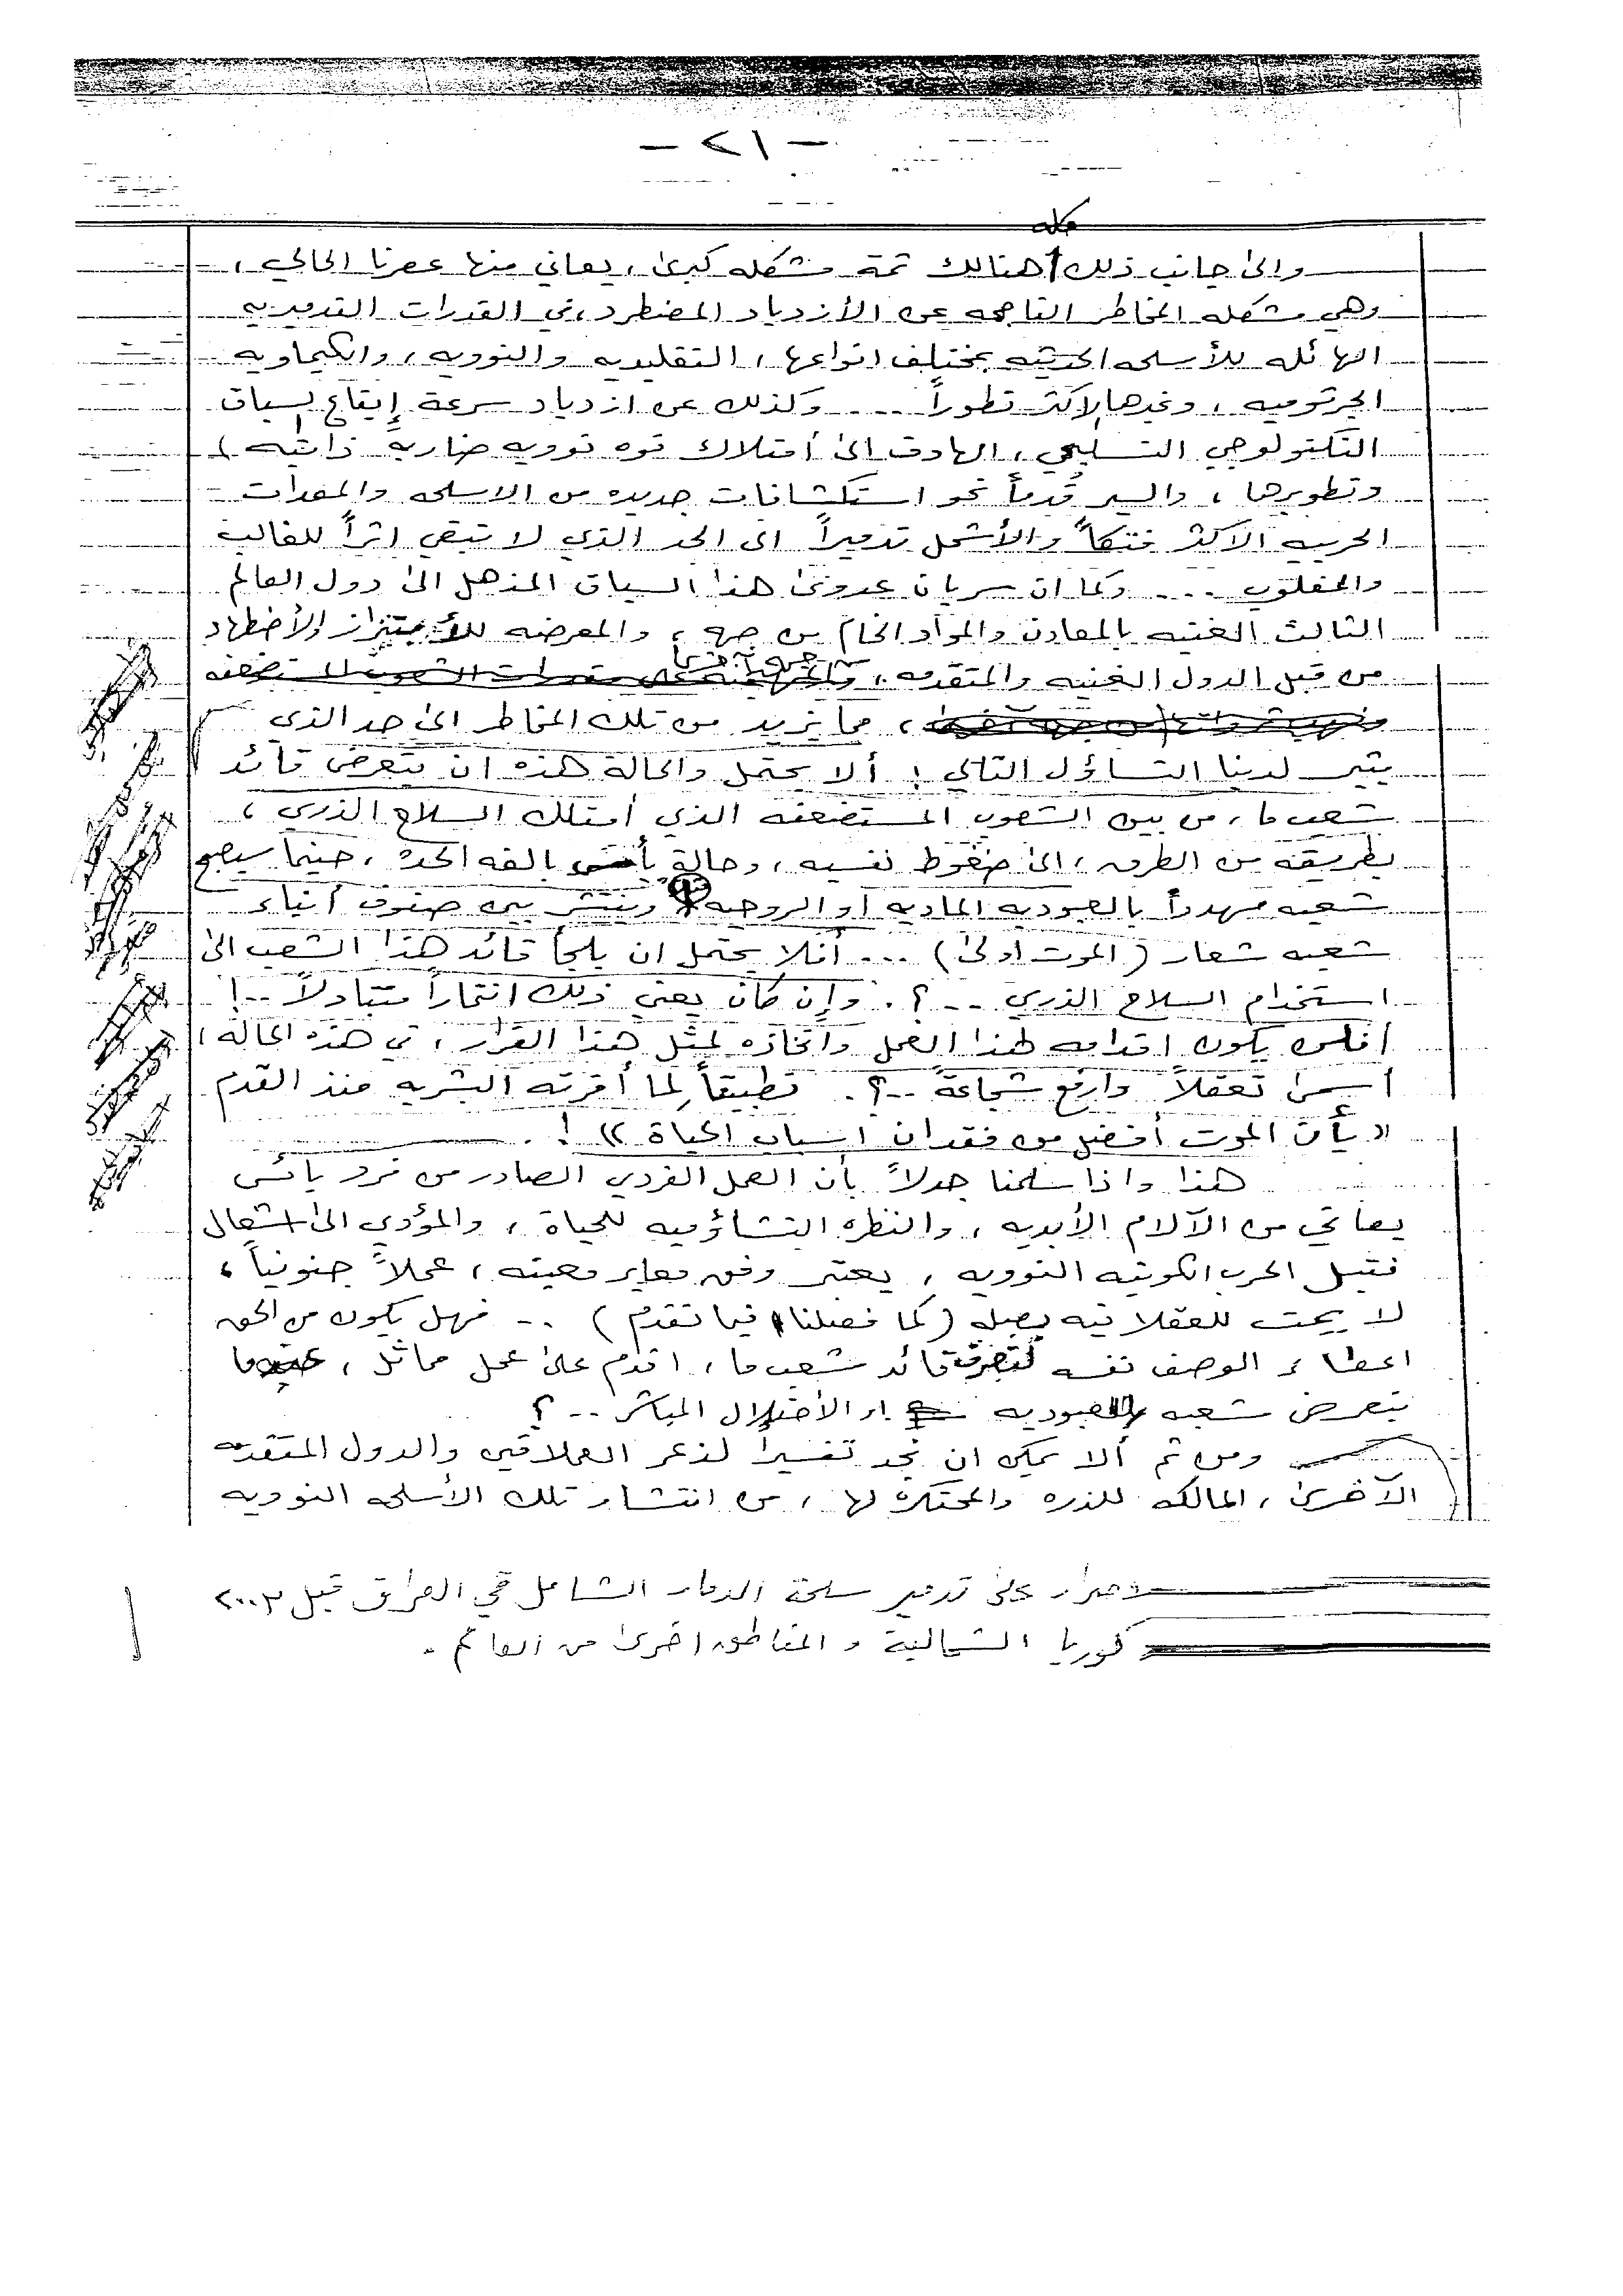 - ٢١ -
كله
والى جانب ذلك هنالك ثمة مشكله كبرى ، يعاني منها عصرنا الحالي ،
وهي مشكله المخاطر الناجمه عن الأزدياد المضطرد ، في القدرات التدميريه
الهائله للأسلحه الحديثه بمختلف انواعها ، التقليديه والنوويه ، والكيماويه
الجرثوميه ، وغيرها الاكثر تطوراً .... وكذلك عن ازدياد سرعة إيقاع السباق
التكنولوجي التسليحي ، الهادف الى أمتلاك قوه نوويه ضاربة ذاتيه ،
وتطويرها ، والسير قُدماً نحو استكشافات جديده من الاسلحه والمعدات
الحربيه الاكثر فتكاً والأشمل تدميراً الى الحد الذي لا تبقي اثراً للغالب
والمغلوب .... وكما ان سريان عدوى هذا السباق المذهل الى دول العالم
الثالث الغنيه بالمعادن والمواد الخام من جهه ، والمعرضه للأبتزاز والأضطهاد
من قبل الدول الغنيه والمتقدمه ، من جهه أخرى
، مما يزيد من تلك المخاطر الى حد الذي
يثير لدينا التساؤل التالي ؛ ألا يحتمل والحالة هذه ان يتعرض قائد
شعب ما ، من بين الشعوب المستضعفه الذي أمتلك السلاح الذري ،
بطريقه من الطرق ، الى ضغوط نفسيه ، وحالة يأس بالغه الحدّه ، حينما سيصبح
شعبه مهدداً بالعبوديه الماديه أو الروحيه وينتشر بين صفوف أبناء
شعبه شعار ( الموت اولى ) ... أفلا يحتمل ان يلجأ قائد هذا الشعب الى
استخدام السلاح الذري .. ؟ . وإن كان يعني ذلك انتحاراً متبادلاً .. !
افليس يكون اقدامه لهذا العمل واتخاذه لمثل هذا القرار ، في هذه الحالة ،
أسمى تعقلاً وارفع شجاعةً .. ؟ . تطبيقاً لِما أقرته البشريه منذ القدم
« بأن الموت أفضل من فقدان اسباب الحياة » ! .
هذا واذا سلمنا جدلاً بأن العمل الفردي الصادر من فرد يائس
يعاني من الآلام الأبديه ، والنظره التشاؤميه للحياة ، والمؤدي الى اشعال
فتيل الحرب الكونيه النوويه ، يعتبر وفق معاير معينه ، عملاً جنونياً ،
لا يمت للعقلانيه بصله ( كما فصلنا فيما تقدم ) .. فهل يكون من الحق
اعطاء الوصف نفسه لتصرف قائد شعب ما ، اقدم على عمل مماثل ، عندما
يتعرض شعبه للعبوديه او الأحتلال المباشر .. ؟
ومن ثم ألا يمكن ان نجد تفسيراً لذعر العملاقين والدول المتقدمه
الآخرى ، المالكه للذره والمحتكره لها ، من انتشار تلك الأسلحه النوويه
الاصرار على تدمير سلحة الدمار الشامل في العراق قبل ٢٠٠٣
كوريا الشمالية و المناطق اخرى من العالم .